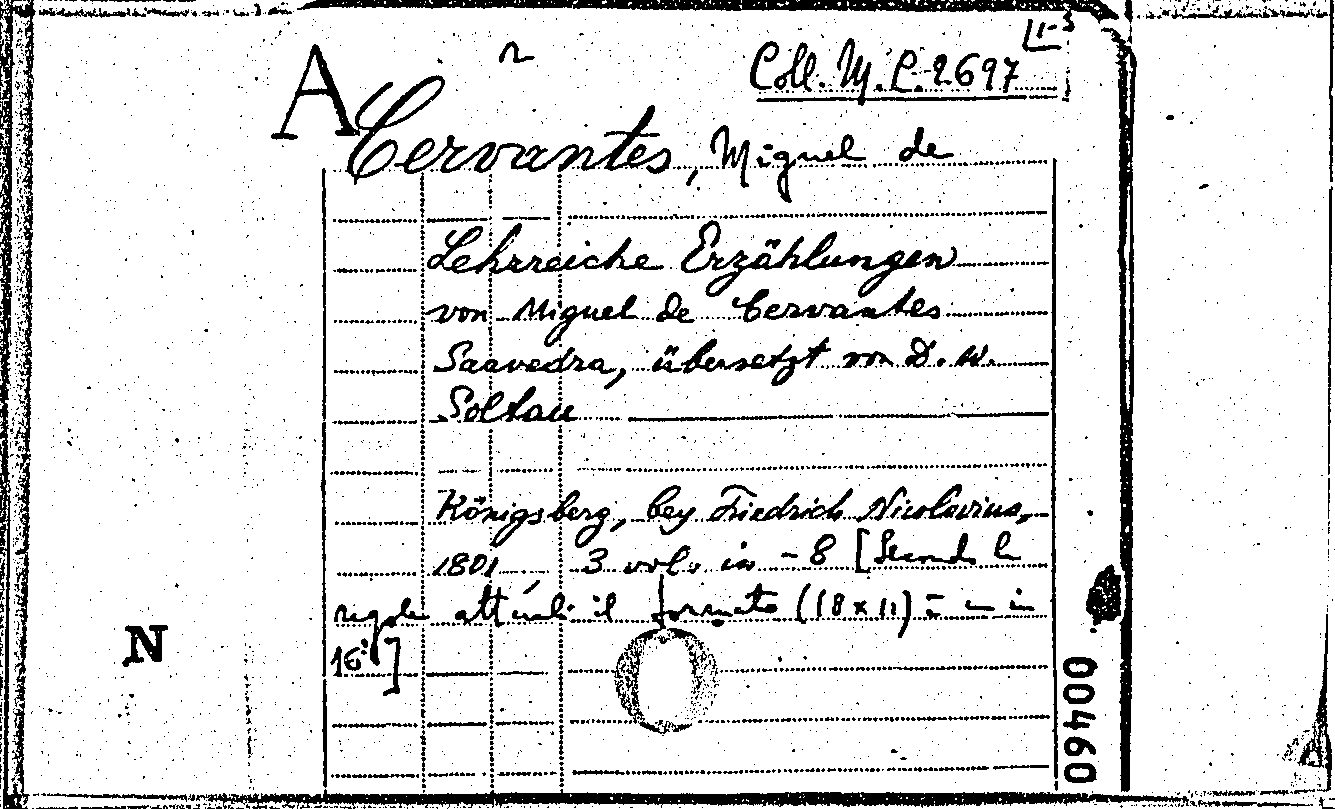 A
Coll. M. C. 2697 [1-3
Cervantes, Miguel de
Lehrreiche Erzählungen
von Miguel de Cervantes
Saavedra, übersetzt von D. W.
Soltau
Königsberg, bey Friedrich Nicolovius,
1801 3 vol. in-8 [Secondo le
regole attuali il formato (18x11) è in
16°]
N
094000